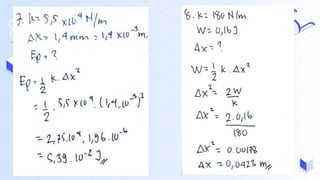 7. k = 5,5 x 10⁴ N/m
Δx = 1,4 mm = 1,4 x 10⁻³ m
Ep = ?
Ep = 1/2 k . Δx²
= 1/2 . 5,5 x 10⁴ . (1,4 . 10⁻³)²
= 2,75 . 10⁴ . 1,96 . 10⁻⁶
= 5,39 . 10⁻² J //
8. k = 180 N/m
W = 0,16 J
Δx = ?
W = 1/2 k . Δx²
Δx² = 2W/k
Δx² = 2 . 0,16/180
Δx² = 0.00178
Δx = 0,0423 m //